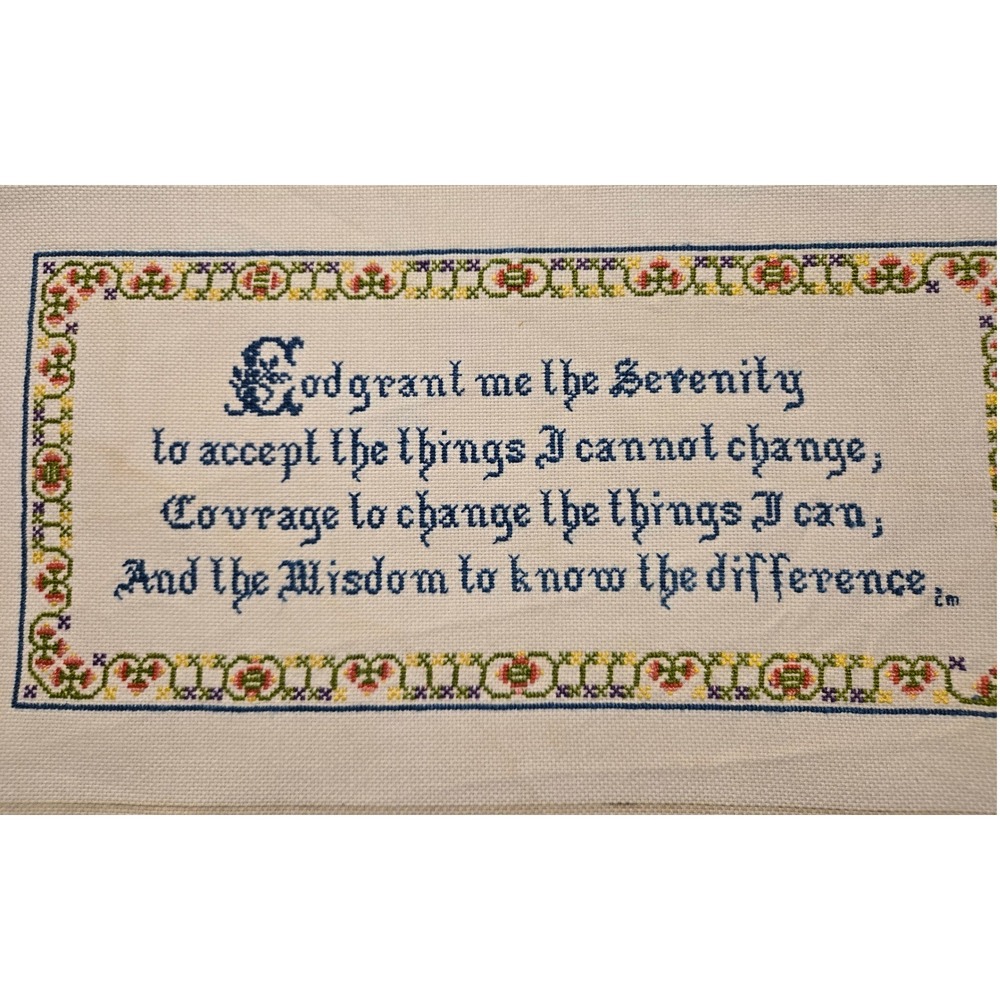 God grant me the Serenity
to accept the things I cannot change;
Courage to change the things I can;
And the Wisdom to know the difference.